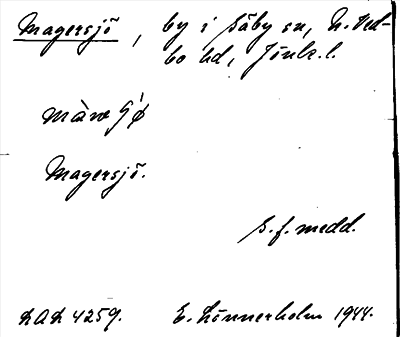 Magersjö, by i Säby sn, N. Ved-
bo hd, Jönk. l.
Magersjö.
S. f. medd.
LAL 4259. E. Lönnerholm 1944.